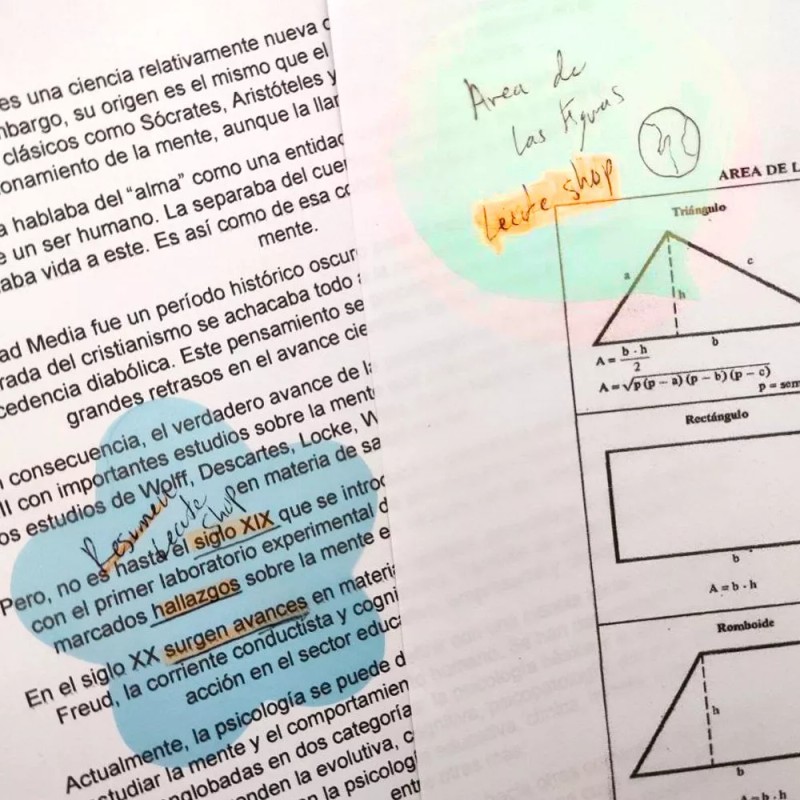 es una ciencia relativamente nueva
mbargo, su origen es el mismo que el
clásicos como Sócrates, Aristóteles y
onamiento de la mente, aunque la llar
a hablaba del "alma" como una entidad
e un ser humano. La separaba del cuer
aba vida a este. Es así como de esa co
mente.
ad Media fue un período histórico oscur
rada del cristianismo se achacaba todo
cedencia diabólica. Este pensamiento se
grandes retrasos en el avance cie
consecuencia, el verdadero avance de la
II con importantes estudios sobre la ment
os estudios de Wolff, Descartes, Locke, W
en materia de sa
Resumen
Lecute
shop
Pero, no es hasta el siglo XIX que se introd
con el primer laboratorio experimental d
marcados hallazgos sobre la mente e
En el siglo XX surgen avances en materi
Freud, la corriente conductista y cogni
acción en el sector educ
Actualmente, la psicología se puede d
studiar la mente y el comportamien
nglobadas en dos categoría
onden la evolutiva, c
n la psicolog
entr
Area de
las figuras
Lecute shop
AREA DE L
Triángulo
a
c
h
b
A = b · h / 2
A = √p (p – a) (p – b) (p – c)
p = sem
Rectángulo
b
A = b · h
Romboide
h
b
A = b · h